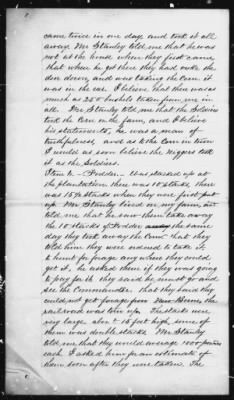 came twice in one day and took it all
away Mr Stanley told me that he was
not at the house when they first came
that when he got there they had broke the
door down, and was taking the corn it
was in the ear. I believe that there was as
much as 250 bushels taken from me in
all. Mr Stanley told me that the Soldiers
took the corn on the farm, and I believe
his statements, he was a man of
truthfulness, and as to the corn in town
I would as soon believe the niggers took
it as the Soldiers.
Item 6 - Fodder - Was stacked up at
the plantation there was 10 stacks, there
was 15 stacks when they were first put
up Mr Stanley lived on my farm, and
told me that he saw them take away
the 10 stacks of Fodder the same
day they took away the Corn that they
told him they were ordered to take it
to hunt forage any where they could
get it, he asked them if they was going
to pay for it they said he must go and
see the Commander that they said they
could not get forage from the
railroad was torn up. The stacks were
very large about 15 feet high, some of
them was double stacks Mr Stanley
told me that they would average 1000 pounds
each I asked him for an estimate of
them soon after they were taken. The